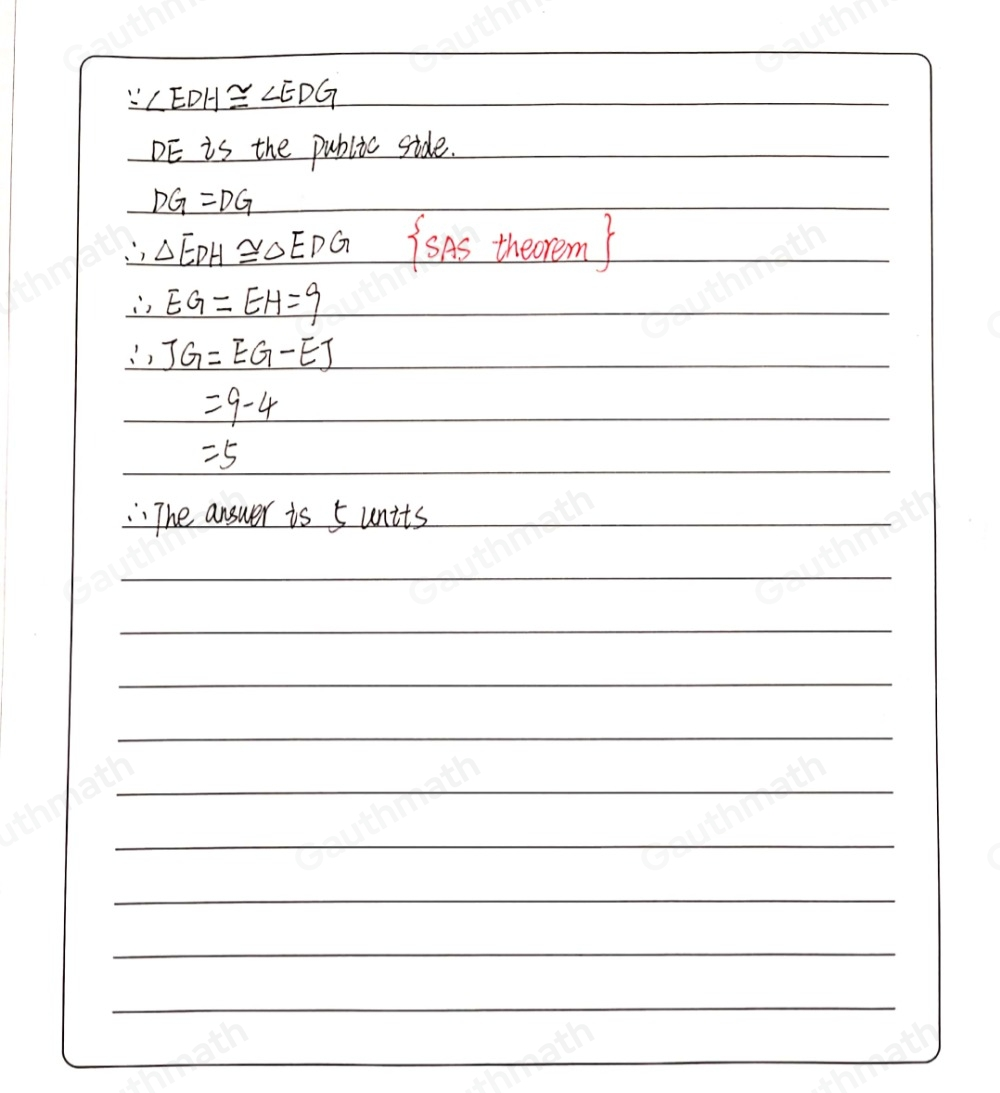 ∵∠EDH≅∠EDG
DE is the public side.
DG=DG
∴△EDH≅△EDG {SAS theorem}
∴EG=EH=9
∴JG=EG-EJ
=9-4
=5
∴The answer is 5 units
Gauthmath